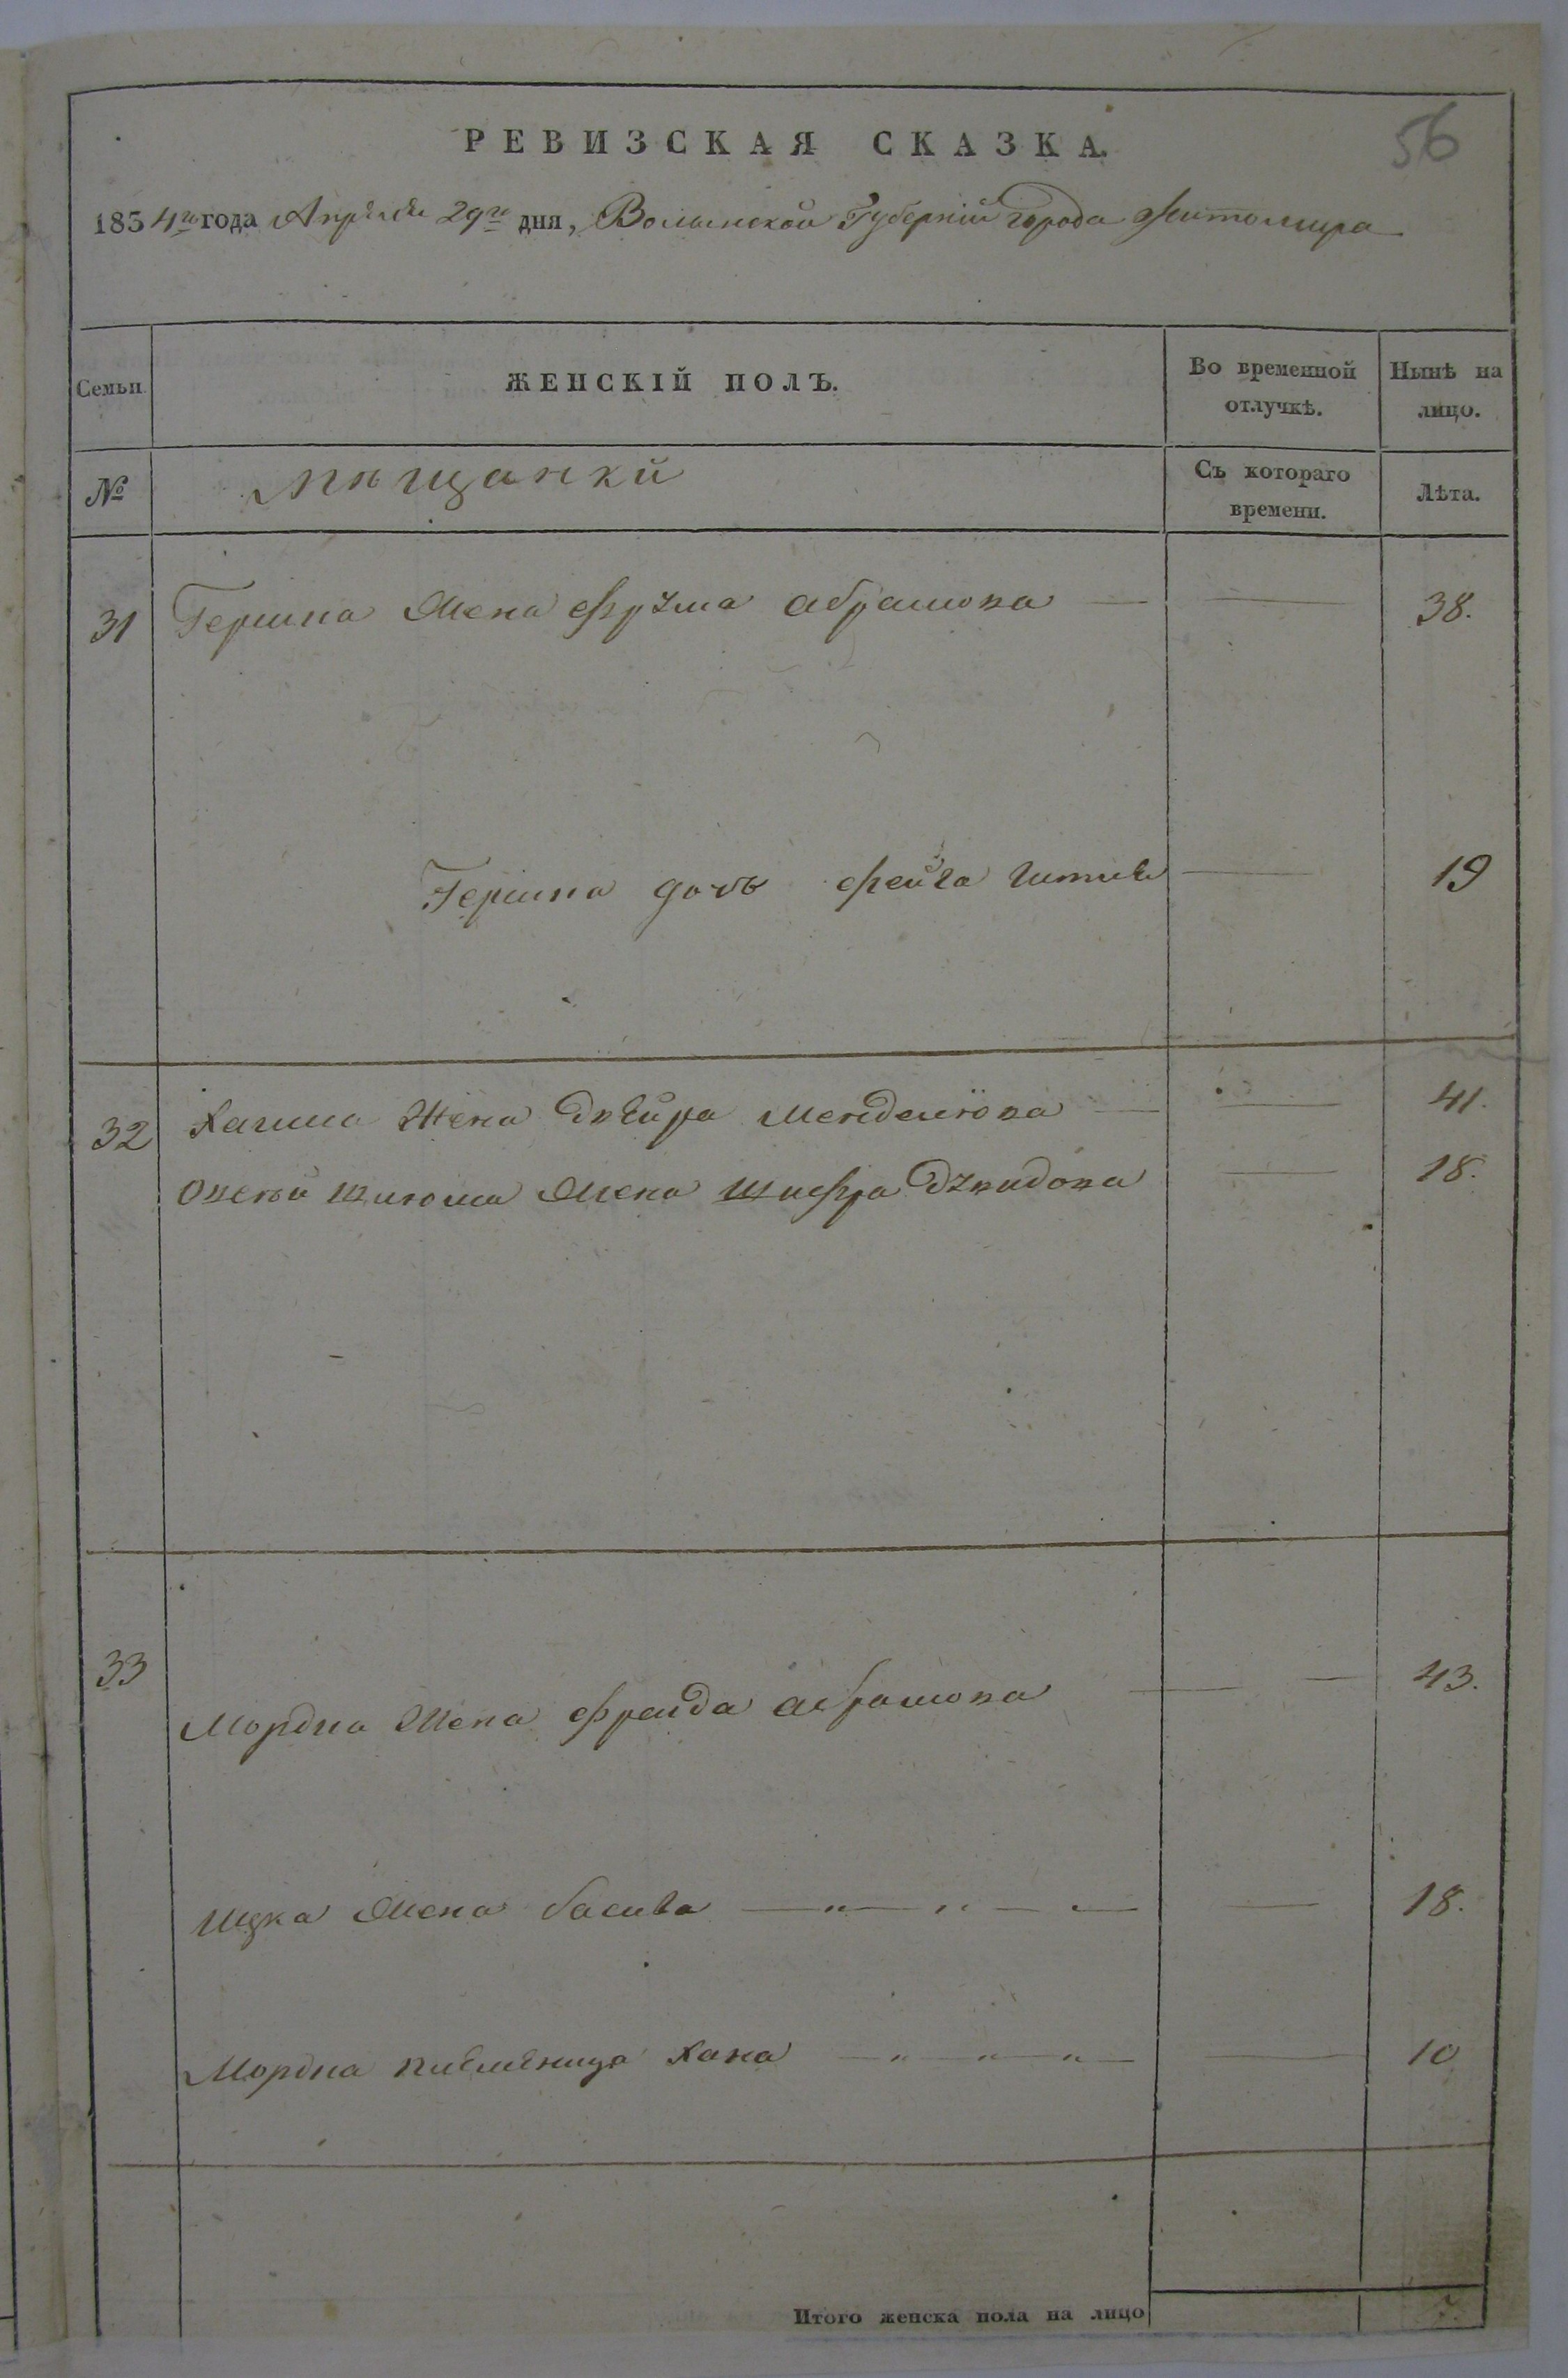 56
РЕВИЗСКАЯ СКАЗКА.
1834го года Апрѣля 29го дня, Волынской Губерніи города Житомира
Семьи. ЖЕНСКІЙ ПОЛЪ. Во временной отлучкѣ. Нынѣ на лицо.
№ Мѣщанкй Съ котораго времени. Лѣта.
31 Гершка Жена Фрума Абрамова — — 38.
Гершка дочь Фейга Гитля — 19
32 Хаима Жена Двейра Менделіова — — 41.
Шлома Жена Шифра Давидова — 18.
33 Мордка Жена Фрейда Абрамова — — 43.
Ицка Жена Басива — „ — „ — — — 18.
Мордка племѣница Хана — „ — „ — „ — — 10
Итого женска пола на лицо 7.